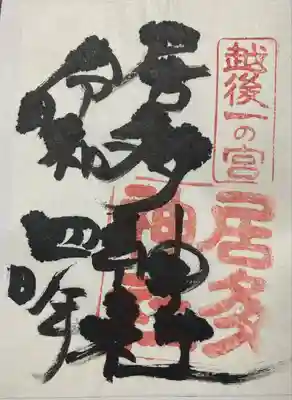 越後一の宮
居多
神社
居多神社
令和四年